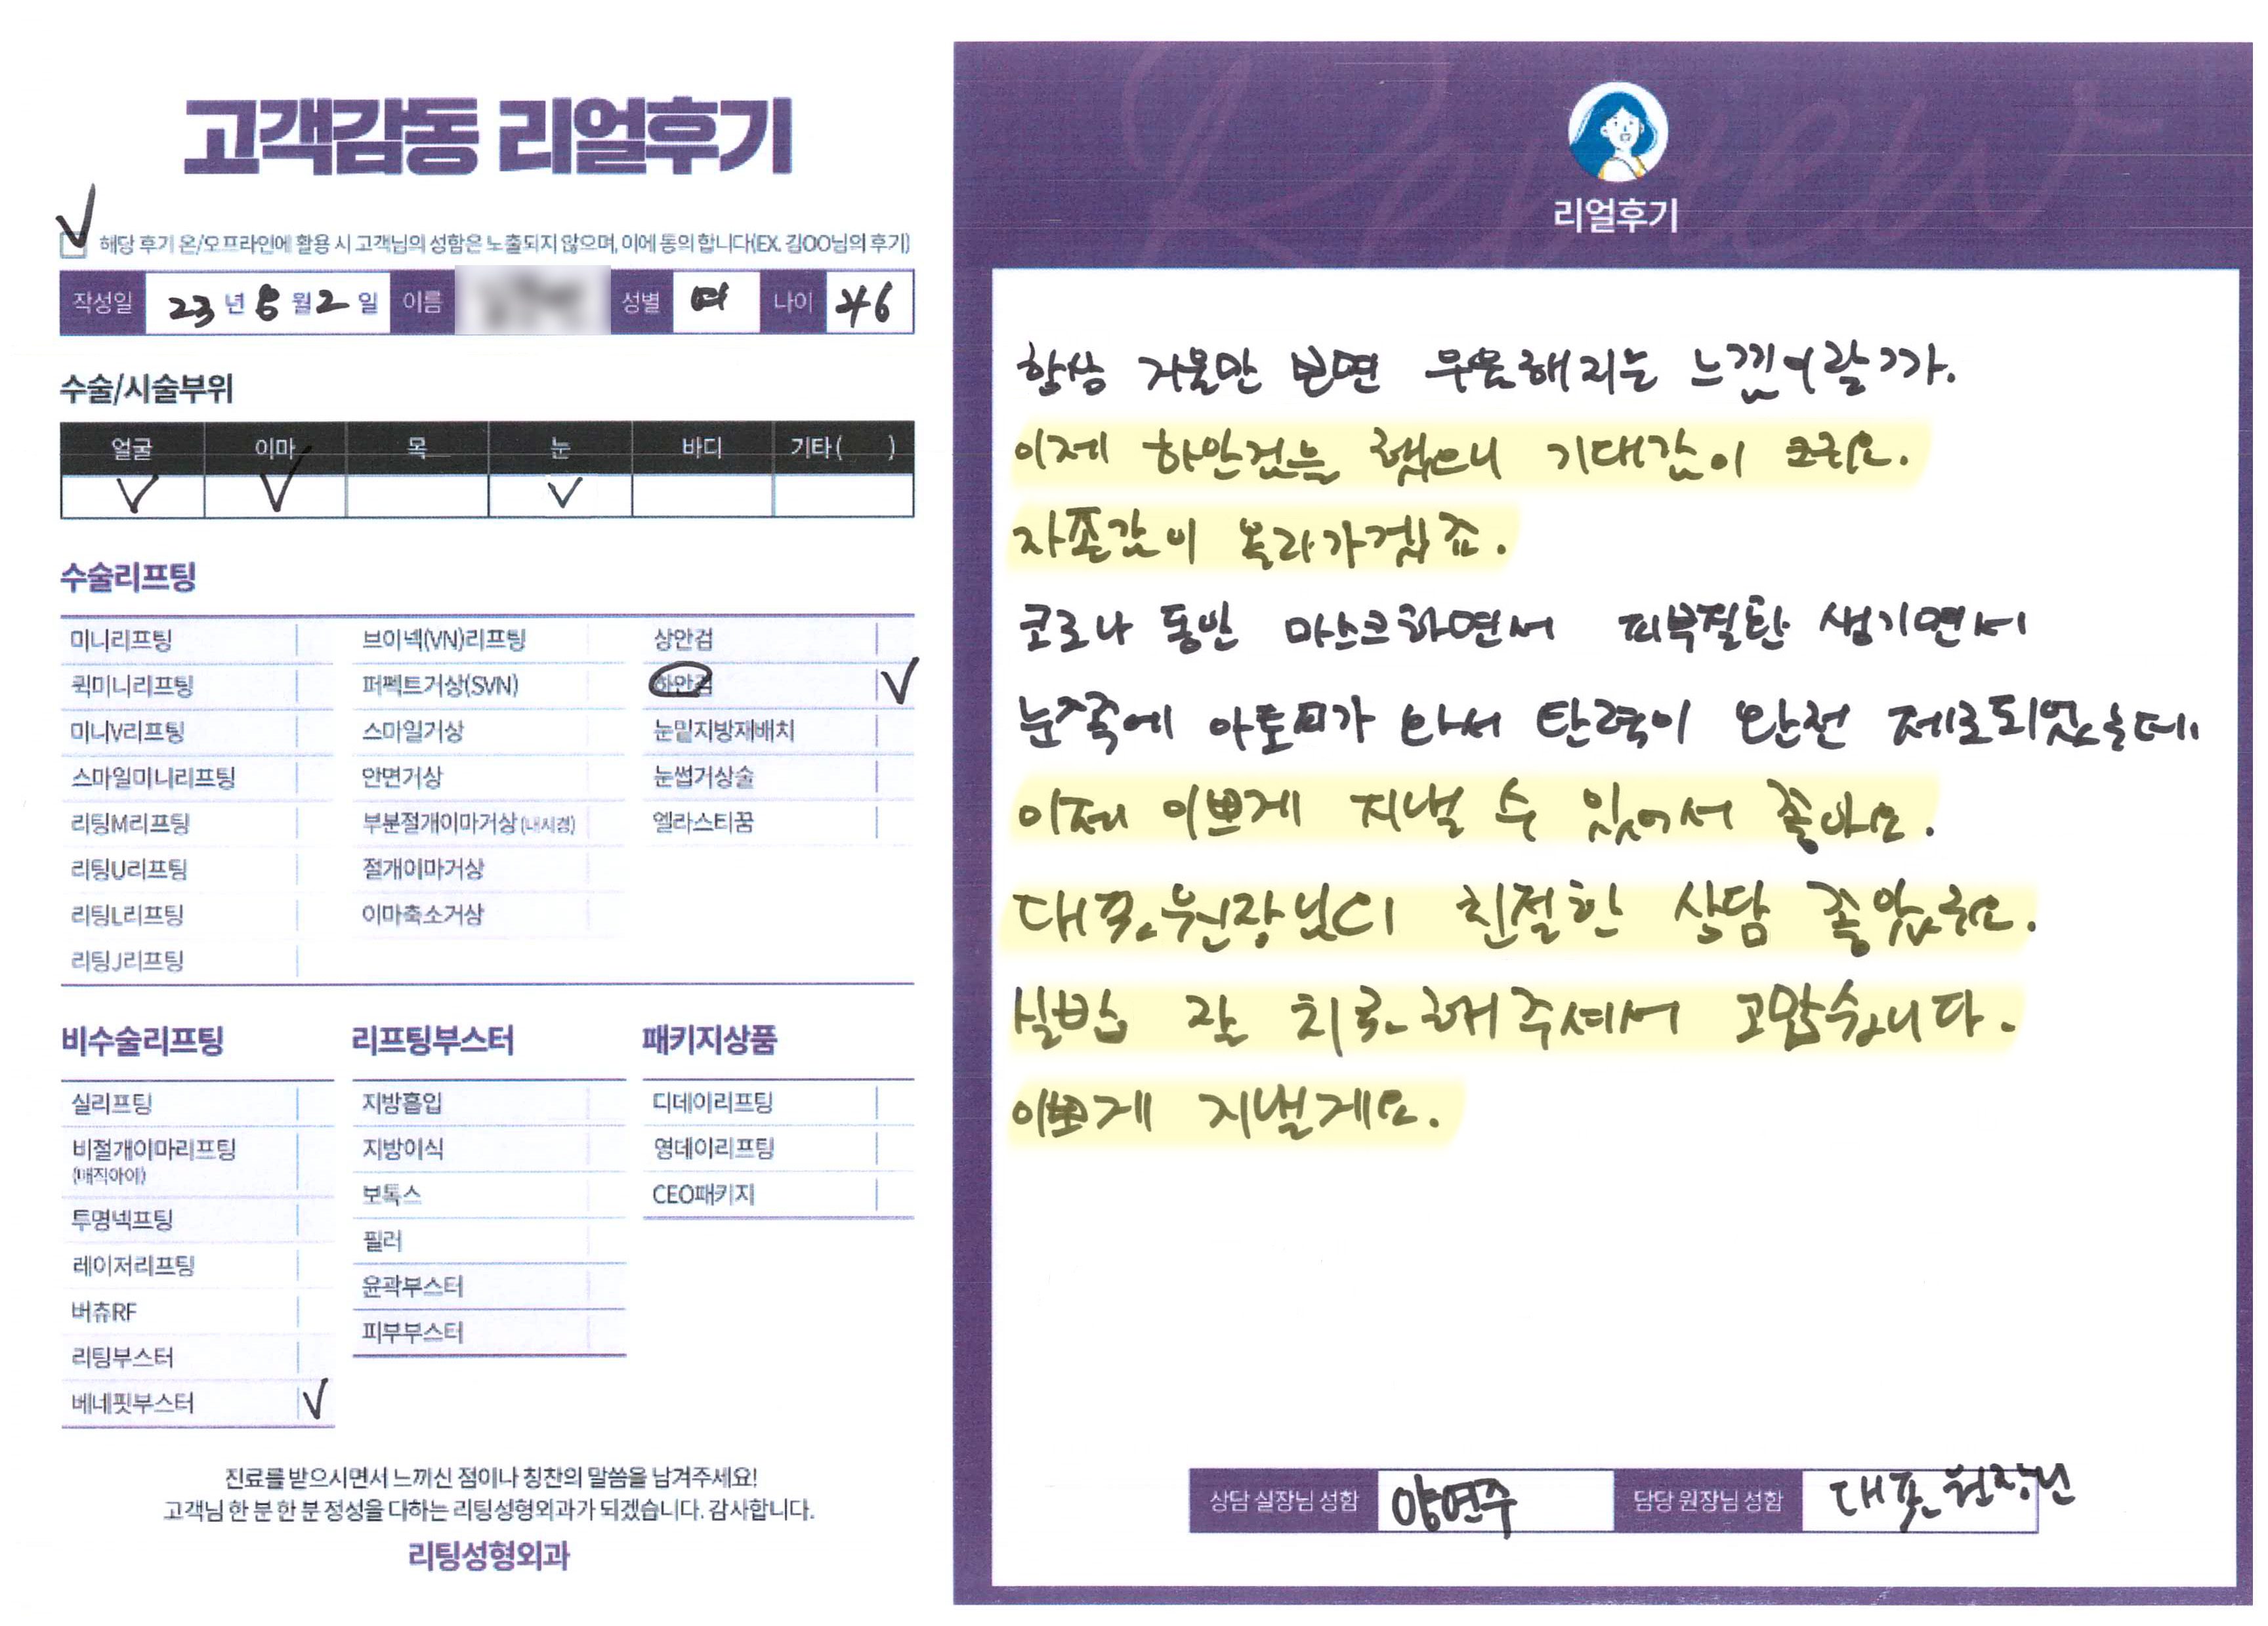 고객감동 리얼후기
해당 후기 온/오프라인에 활용 시 고객님의 성함은 노출되지 않으며, 이에 동의 합니다(EX. 김OO님의 후기)
작성일 23 년 8 월 2 일 이름 성별 여 나이 46
수술/시술부위
얼굴 이마 목 눈 바디 기타( )
수술리프팅
미니리프팅 브이넥(VN)리프팅 상안검
퀵미니리프팅 퍼펙트거상(SVN) 하안검
미니V리프팅 스마일거상 눈밑지방재배치
스마일미니리프팅 안면거상 눈썹거상술
리팅M리프팅 부분절개이마거상(내시경) 엘라스티꿈
리팅U리프팅 절개이마거상
리팅L리프팅 이마축소거상
리팅J리프팅
비수술리프팅
실리프팅
비절개이마리프팅
(매직아이)
투명넥프팅
레이저리프팅
버츄RF
리팅부스터
베네핏부스터
리프팅부스터
지방흡입
지방이식
보톡스
필러
윤곽부스터
피부부스터
패키지상품
디데이리프팅
영데이리프팅
CEO패키지
진료를 받으시면서 느끼신 점이나 칭찬의 말씀을 남겨주세요!
고객님 한 분 한 분 정성을 다하는 리팅성형외과가 되겠습니다. 감사합니다.
리팅성형외과
Review
리얼후기
항상 거울만 보면 우울해지는 느낌이랄까.
이제 하안검을 했으니 기대감이 크죠.
자존감이 올라가겠죠.
코로나 동안 마스크하면서 피부질환 생기면서
눈쪽에 아토피가 와서 탄력이 완전 제로되었는데.
이제 이쁘게 지낼 수 있어서 좋아요.
대표원장님이 친절한 상담 좋았어요.
실밥 잘 치료해주셔서 고맙습니다.
이쁘게 지낼게요.
상담 실장님 성함 양연주 담당 원장님 성함 대표원장님